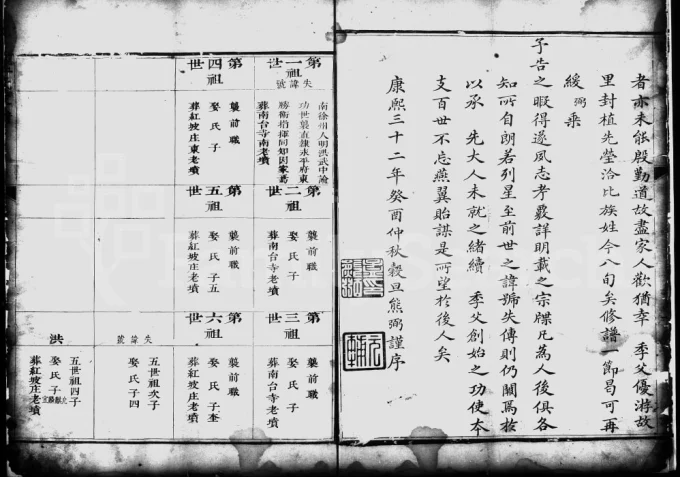 者亦未能殷勤道故盡家人歡猶幸 季父優游故
里封植先塋洽比族姓今八旬矣修譜一節曷可再
緩 弼 乗
予告之暇得遂風志孝覈詳明載之宗牒凡為人後俱各
知所自朗若列星至前世之諱號失傳則仍闕焉按
以承 先大人未就之緒續 季父創始之功使本
支百世不忘燕翼貽謀是所望於後人矣
康熙三十二年癸酉仲秋穀旦熊弼謹序
元輔
第一祖世
失諱號
南徐州人明洪武中論
功世襲直隷永平府東
勝衛指揮同知因家焉
葬南台寺南老墳
第二祖世
襲前職
娶 氏 子
葬南台寺老墳
第三祖世
襲前職
娶 氏 子
葬南台寺老墳
第四祖世
襲前職
娶 氏 子
葬紅坡庄東老墳
第五祖世
襲前職
娶 氏 子五
葬紅坡庄老墳
第六祖世
襲前職
娶 氏 子奎
葬紅坡庄老墳
失諱號
五世祖次子
娶 氏 子四
洪
五世祖四子
娶 氏 子
葬紅坡庄老墳